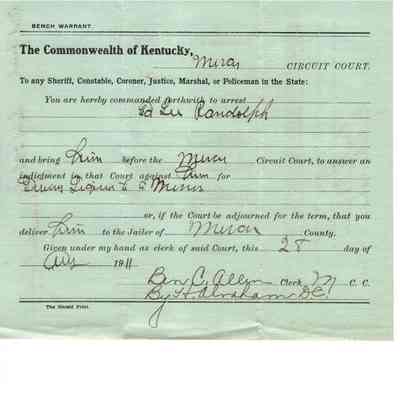 BENCH WARRANT.
The Commonwealth of Kentucky,
Mercer CIRCUIT COURT.
To any Sheriff, Constable, Coroner, Justice, Marshal, or Policeman in the State:
You are hereby commanded forthwith to arrest
Ed Lee Randolph
and bring him before the Mercer Circuit Court, to answer an
indictment in that Court against him for
Giving Liquor to a Minor
or, if the Court be adjourned for the term, that you
deliver him to the Jailer of Mercer County.
Given under my hand as clerk of said Court, this 28 day of
Aug 1911
Ben C. Allin Clerk M C. C.
By H. Abraham D.C.
The Herald Print.